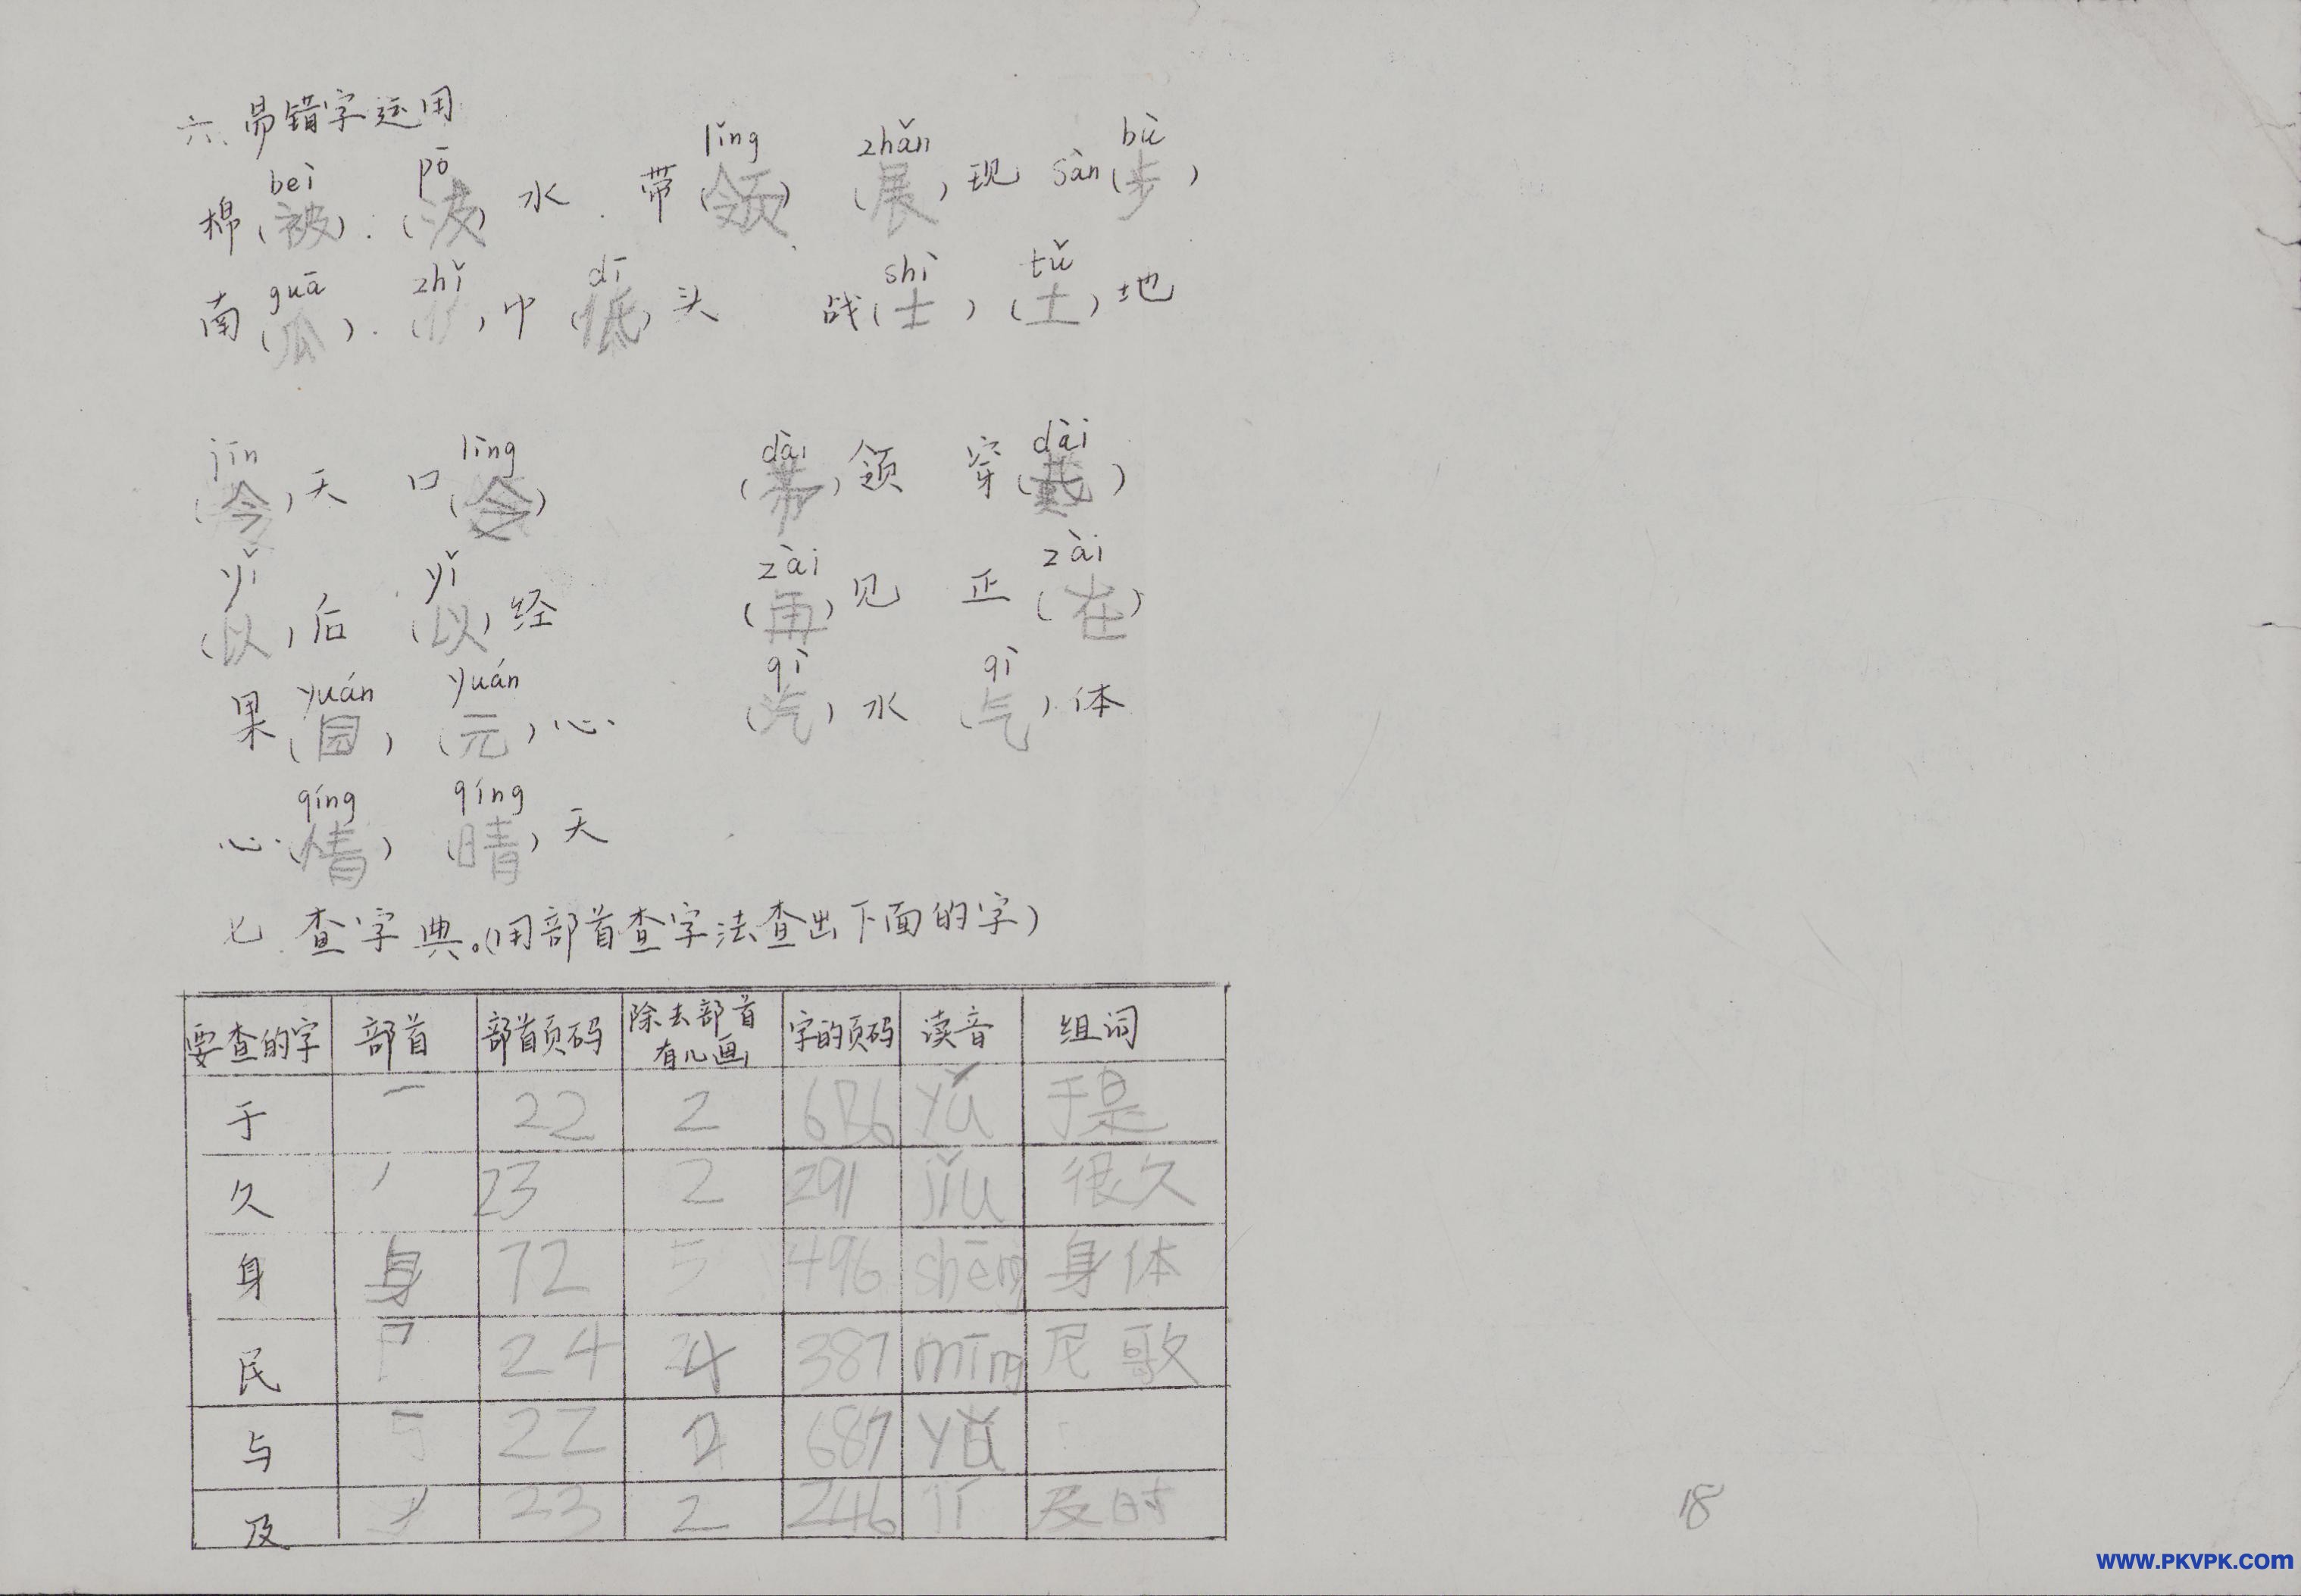 六、易错字运用
bèi pō lǐng zhǎn bù
棉(被).(波)水.带(领)(展)现 sàn(步)
guā zhǐ dī shì tǔ
南(瓜).( )巾(低)头 战(士)(土)地
jīn lìng dài dài
(今)天 口(令) (带)领 穿(戴)
yǐ yǐ zài zài
(以)后 (以)经 (再)见 正(在)
yuán yuán qì qì
果(园)(元)心 (汽)水 (气)体
qíng qíng
心(情)(晴)天
七.查字典。(用部首查字法查出下面的字)
要查的字 部首 部首页码 除去部首有几画 字的页码 读音 组词
于 一 22 2 686 yú 于是
久 丿 23 2 291 jiǔ 很久
身 身 72 5 496 shēng 身体
民 乛 24 4 387 mīng 民歌
与 一 22 2 687 yǔ
及 丿 23 2 246 jí 及时
18
WWW.PKVPK.COM